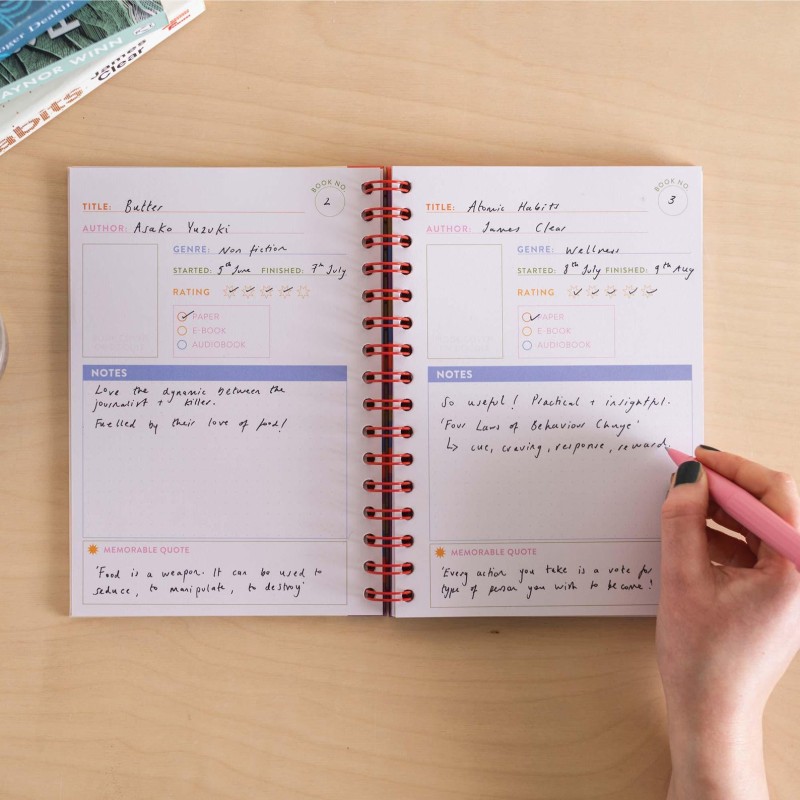 oger Deakin
AYNOR WINN
James
Clear
abits
BOOK NO.
2
TITLE: Butter
AUTHOR: Asako Yuzuki
GENRE: Non fiction
STARTED: 5th June FINISHED: 7th July
RATING
PAPER
E-BOOK
AUDIOBOOK
NOTES
Love the dynamic between the
journalist + killer.
Fuelled by their love of food!
MEMORABLE QUOTE
'Food is a weapon. It can be used to
seduce, to manipulate, to destroy'
BOOK NO.
3
TITLE: Atomic Habits
AUTHOR: James Clear
GENRE: Wellness
STARTED: 8th July FINISHED: 9th Aug
RATING
PAPER
E-BOOK
AUDIOBOOK
NOTES
So useful! Practical + insightful.
'Four Laws of Behaviour Change'
↳ cue, craving, response, reward.
MEMORABLE QUOTE
'Every action you take is a vote for
type of person you wish to become!